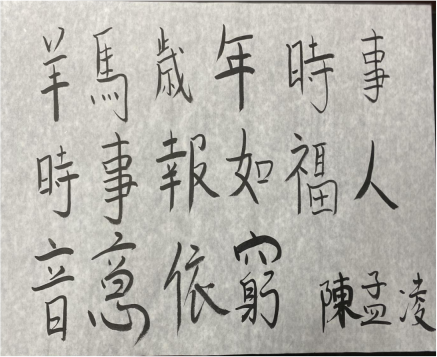 羊馬歲年時事
時事報如福人
音意依窮 陳孟凌